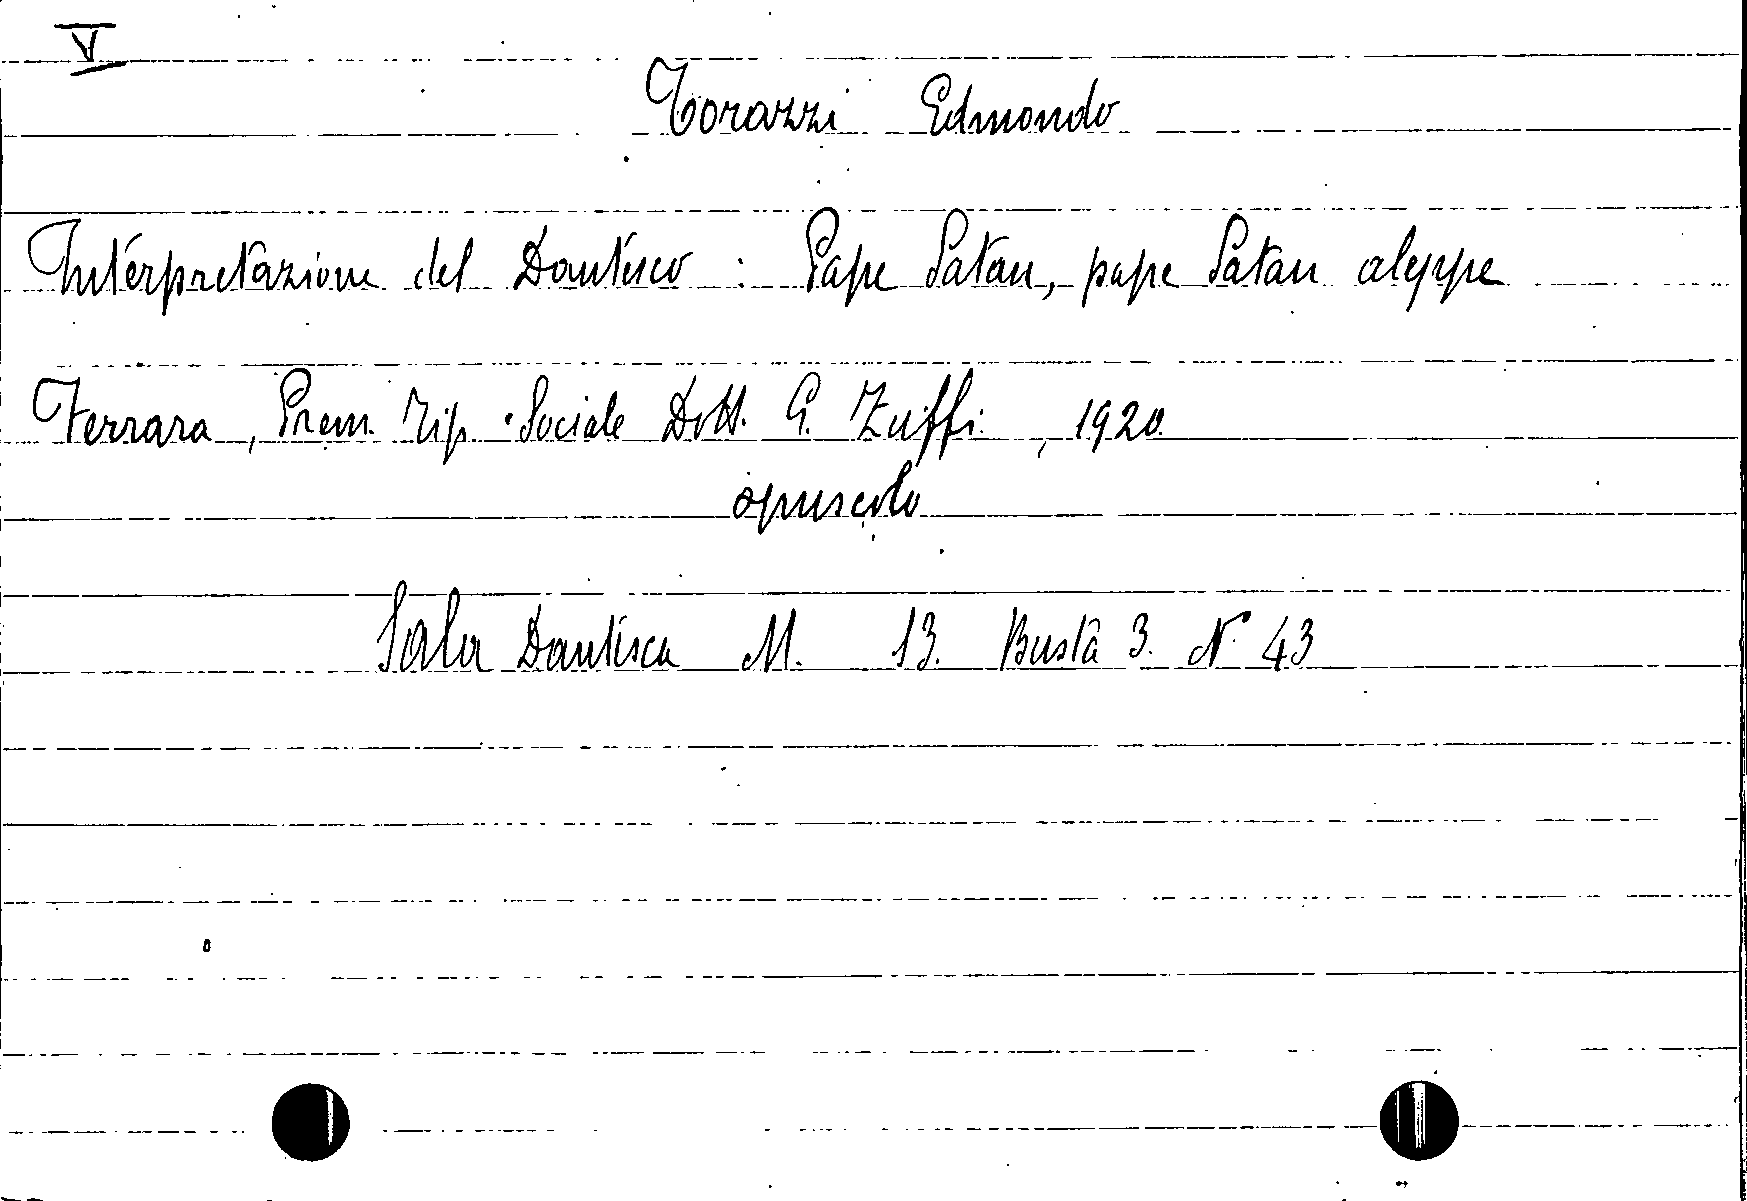 V
Torazzi Edmondo
Interpretazione del Dantesco : Pape Satan, pape Satan aleppe
Ferrara, Prem. Tip. Sociale Dott. G. Zuffi, 1920
opuscolo
Sala Dantesca M. 13. Busta 3. N. 43